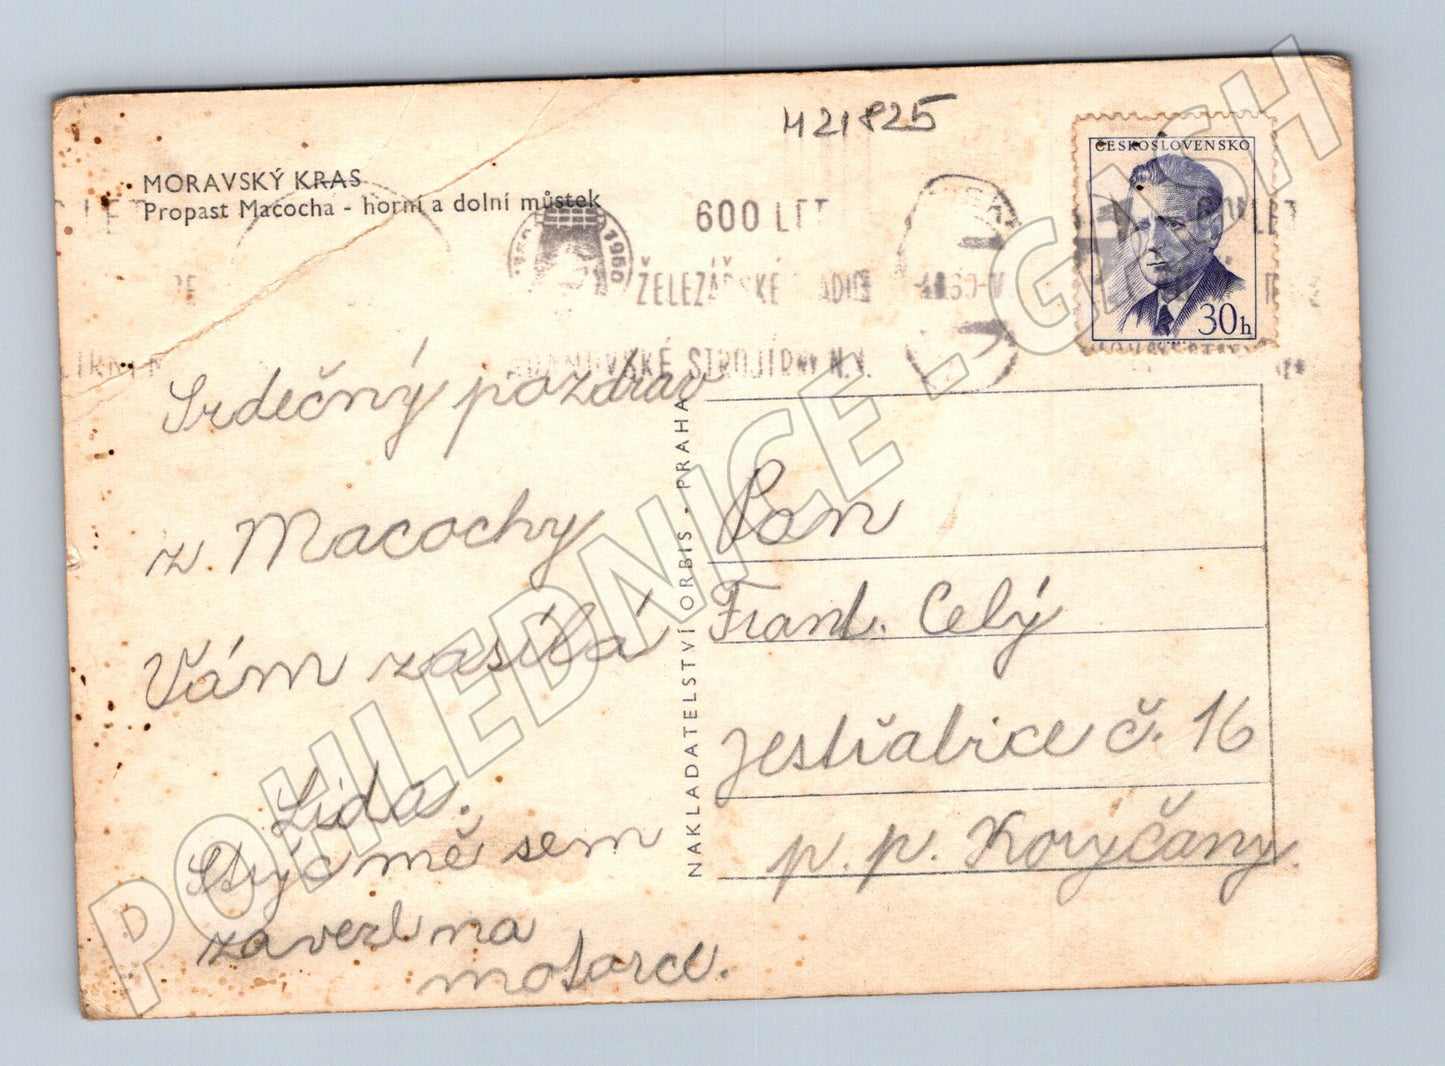 M21825
MORAVSKÝ KRAS
Propast Macocha - horní a dolní můstek
ČESKOSLOVENSKO
30h
1960
600 LET
ŽELEZÁŘSKÉ
STROJÍRNY N.P.
Srdečný pozdrav
z Macochy
Vám zasílá
Lída.
Strýc mě sem
zavezl na
motorce.
NAKLADATELSTVÍ ORBIS - PRAHA
Pan
Frant. Celý
Jestřabice č. 16
p. p. Koryčany.
POHLEDNICE - GASH